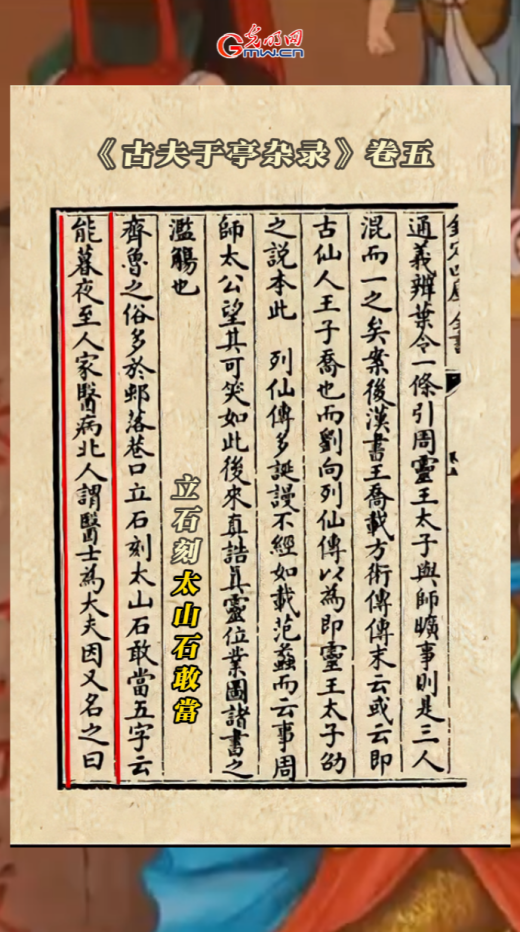 光明网
Gmw.cn
《古夫于亭杂录》卷五
通義辨葉令一條引周靈王太子與師曠事則是三人
混而一之矣案後漢書王喬載方術傳傳末云或云即
古仙人王子喬也而劉向列仙傳以為即靈王太子劭
之說本此 列仙傳多誕謾不經如載范蠡而云事周
師太公望其可笑如此後來真誥真靈位業圖諸書之
濫觴也
齊魯之俗多於邨落巷口立石刻太山石敢當五字云
能暮夜至人家醫病北人謂醫士為大夫因又名之曰
立石刻太山石敢當